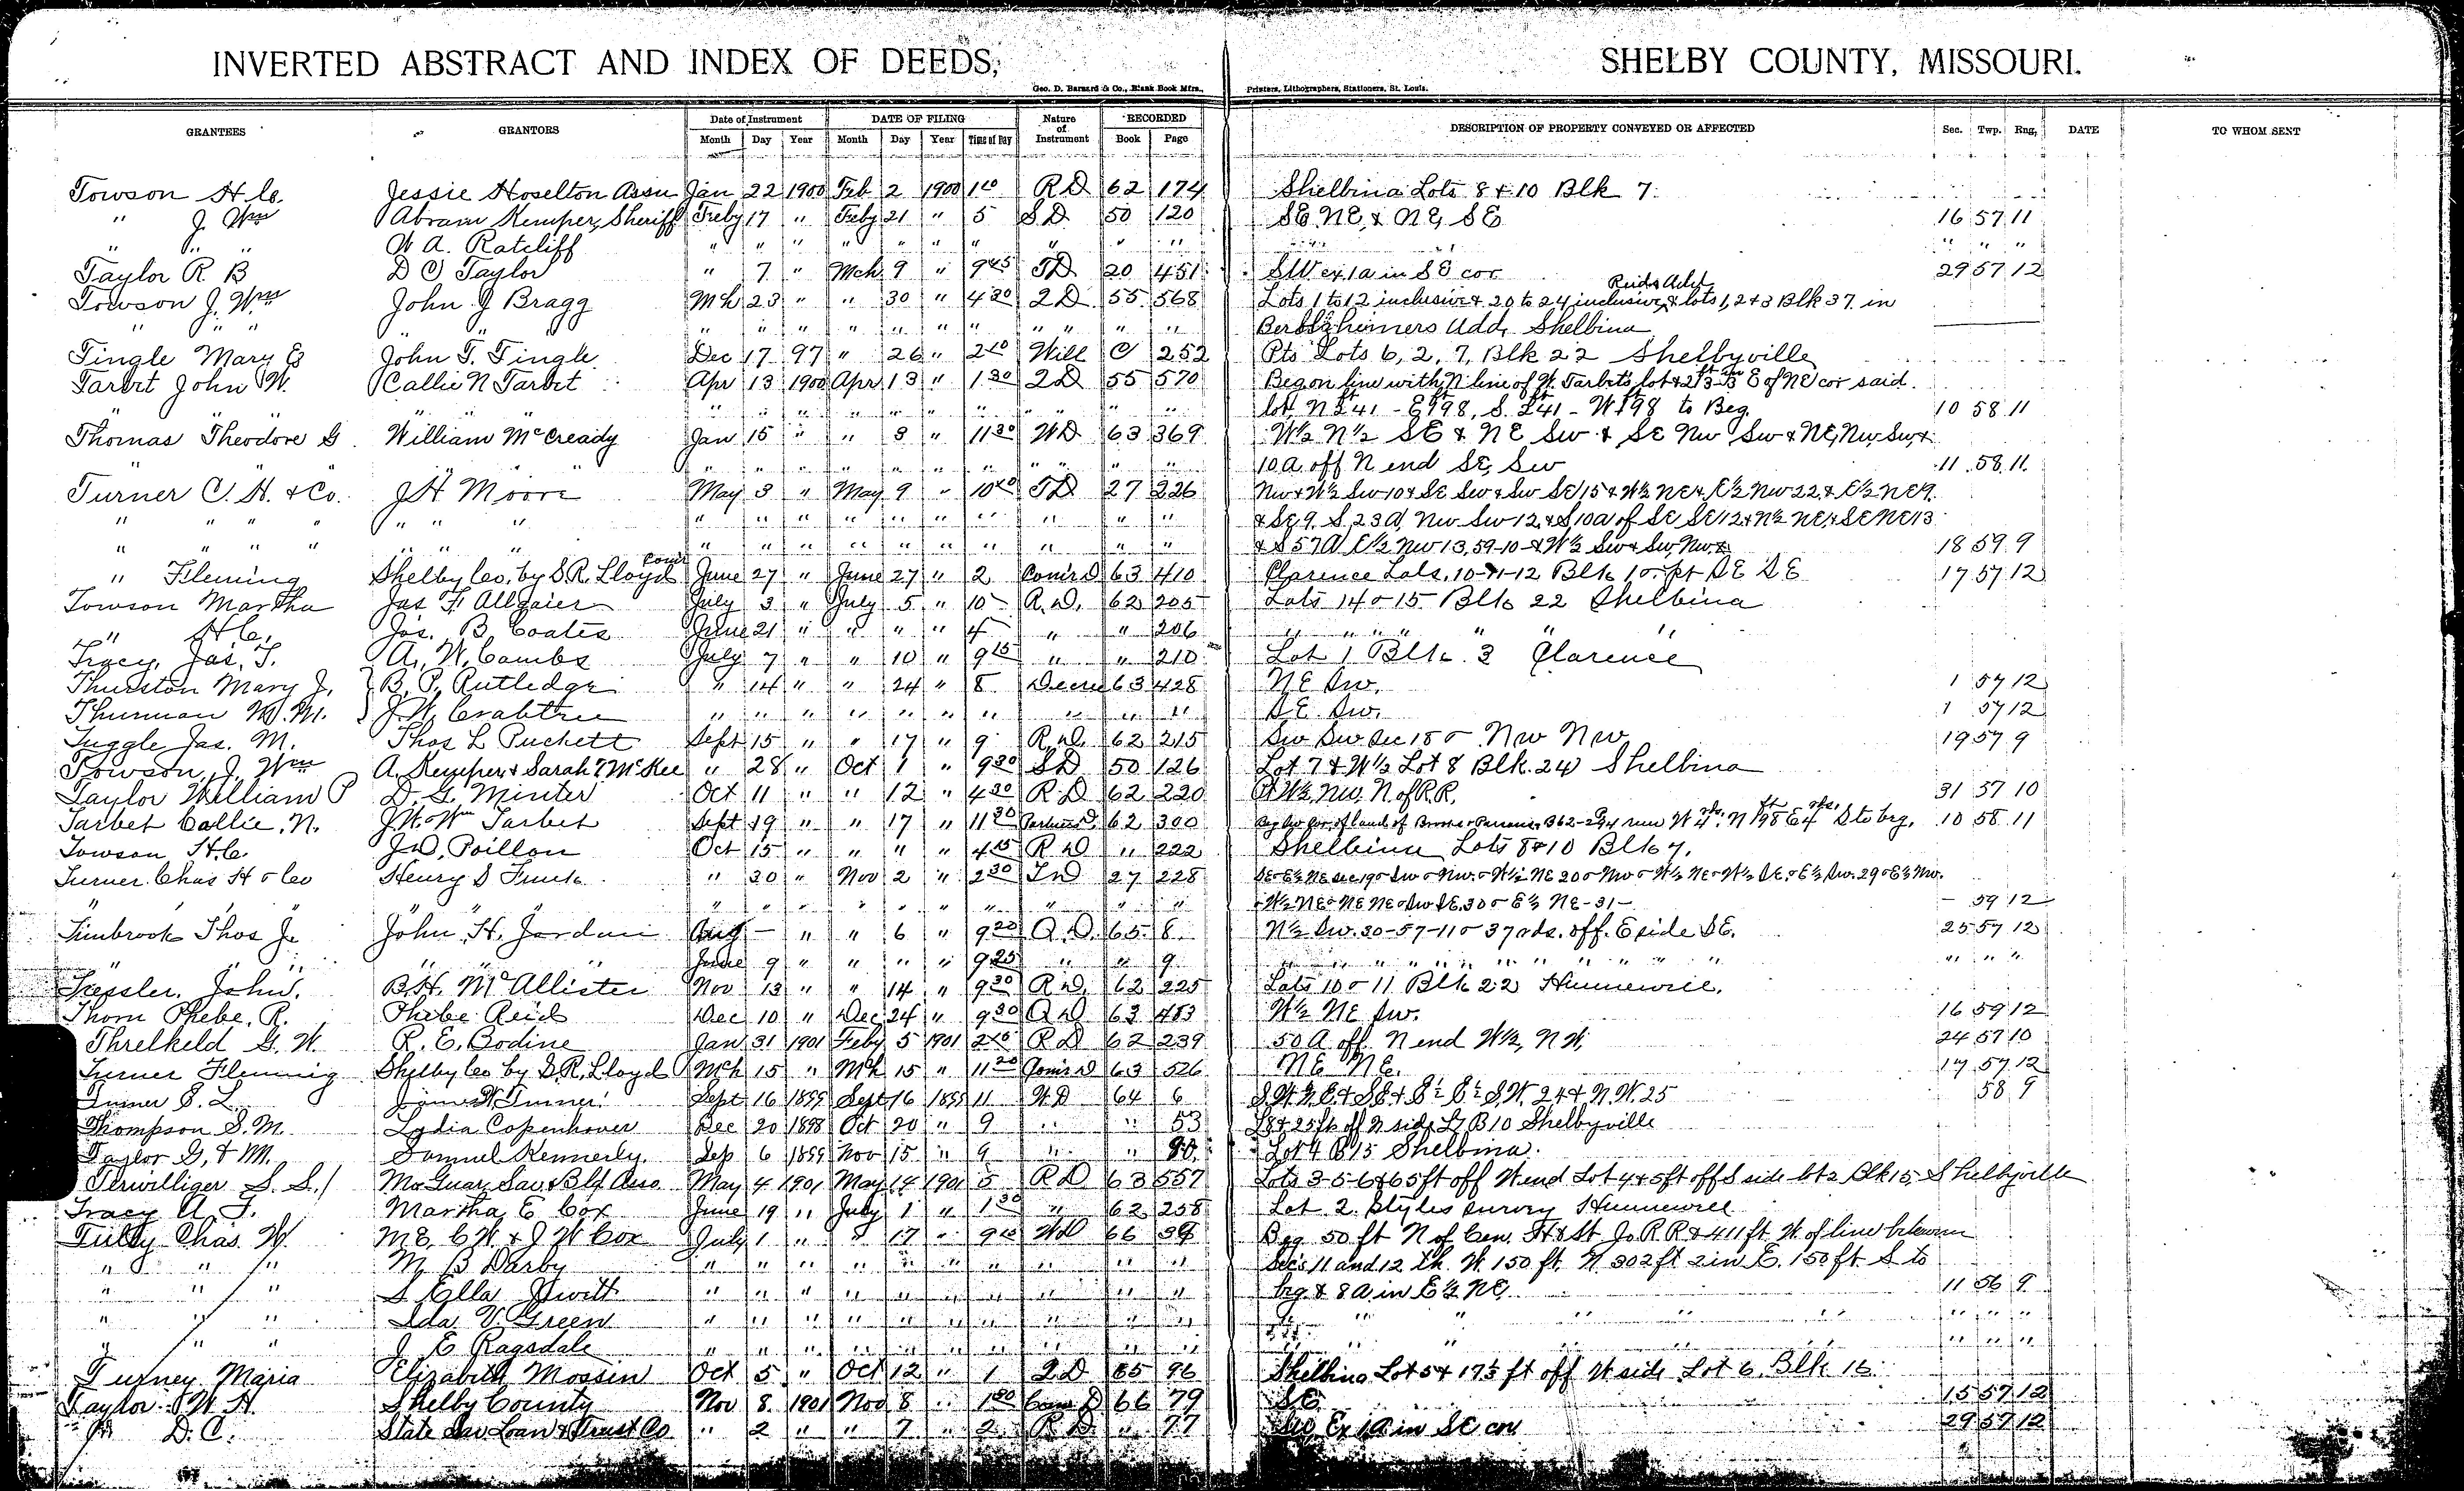 INVERTED ABSTRACT AND INDEX OF DEEDS, SHELBY COUNTY, MISSOURI.
Geo. D. Barnard & Co., Blank Book Mfrs., Printers, Lithographers, Stationers, St. Louis.
GRANTEES GRANTORS Date of Instrument DATE OF FILING Nature of Instrument RECORDED DESCRIPTION OF PROPERTY CONVEYED OR AFFECTED Sec. Twp. Rng. DATE TO WHOM SENT
Month Day Year Month Day Year Time of Day Book Page
Towson H C. Jessie Hoselton Assn Jan 22 1900 Feb 2 1900 1 10 R D 62 174 Shelbina Lots 8 & 10 Blk 7.
" J. Wm Abram Kemper, Sheriff Feby 17 " Feby 21 " 5 S D 50 120 SE NE, & NE, SE 16 57 11
" " " W A. Ratcliff " " " " " " " " " " " " "
Taylor R B D C Taylor " 7 " Mch 9 " 9 45 T D 20 451 SW ex 1 a in S E cor 29 57 12
Towson J. Wm John J Bragg Mch 23 " " 30 " 4 30 2 D 55 568 Lots 1 to 12 inclusive & 20 to 24 inclusive Reids Add & lots 1, 2 & 3 Blk 37 in
" " " " " " " " " " " " " " Add, Shelbina
Tingle Mary E John T. Tingle Dec 17 97 " 26 " 2 10 Will C 252 Pts Lots 6, 2, 7, Blk 22 Shelbyville
Tarbet John W. Callie N Tarbet Apr 13 1900 Apr 13 " 1 30 2 D 55 570 Beg on line with N line of W. Tarbets lot & E of NE cor said
" " " " " " " " " lot, N 41 - E 198, S. 41 - W 198 to Beg. 10 58 11
Thomas Theodore G. William McCready Jan 15 " " 3 " 11 30 W D 63 369 W½ N½ SE & NE Sw & SE Nw Sw & NE, Nw, Sw, &
" " " " " " " " " " 10 a. off N end SE, Sw 11 58 11
Turner C. H. & Co. J H Moore May 3 " May 9 " 10 40 T D 27 226 Nw & W½ Sw 10 & SE Sw & Sw SE 15 & W½ NE & E½ Nw 22 & E½ NE 9.
" " " " " " " " " " " " " " " " " & SE 9. S 23 A Nw Sw 12, & S 10 a of SE SE 12 & N½ NE & SE NE 13
" " " " " " " " " " " " " " " " " & S 57 A E½ Nw 13, 59-10 & W½ Sw & Sw, Nw & 18 59 9
" Fleming Shelby Co. by S. R. Lloyd Comr June 27 " June 27 " 2 Comrs D 63 410 Clarence Lots. 10-11-12 Blk 10. pt SE SE 17 57 12
Towson Martha Jas F. Allgaier July 3 " July 5 " 10 R. D. 62 205 Lots 14 & 15 Blk 22 Shelbina
" H C. Jos. B Coates June 21 " " " " 4 " " 206 " " " " " "
Tracy, Jas, T. A. W. Combs July 7 " " 10 " 9 15 " " 210 Lot 1 Blk. 3 Clarence
Thurston Mary J. B. P. Rutledge " 14 " " 24 " 8 Decree 63 428 NE Sw. 1 57 12
Thurman W. M. J. W. Crabtree " " " " " " " " " " SE Sw. 1 57 12
Tuggle Jas. M. Thos L Puckett Sept 15 " " 17 " 9 R. D. 62 215 Sw Sw Sec 18 & Nw Nw 19 57 9
Towson, J. Wm A. Kemper & Sarah T McKee " 28 " Oct 1 " 9 30 S D 50 126 Lot 7 & W½ Lot 8 Blk. 24 Shelbina
Taylor William P D. G. Minter Oct 11 " " 12 " 4 30 R D 62 220 W½ Nw. N of R.R. 31 57 10
Tarbet Callie, N. J. W. & Wm Tarbet Sept 19 " " 17 " 11 20 62 300 S to beg, 10 58 11
Towson H. C. J. D. Poillon Oct 15 " " " " 4 15 R D " 222 Shelbina Lots 8 & 10 Blk 7.
Turner Chas H & Co Henry S Funk " 30 " Nov 2 " 2 30 T D 27 228 SE & E½ NE Sec 19 & Sw & Nw. & W½ NE 20 & Nw & W½ NE & W½ SE. & E½ Sw. 29 & E½ Nw.
" " " " " " " " " " " " & W½ NE & NE NE & Sw SE, 30 & E½ NE - 31 - 59 12
Timbrook Thos J. John, H. Jordan Aug — " " 6 " 9 20 Q. D. 65 8 N½ Sw. 30-57-11 & 37 rds. off. E side SE. 25 57 12
" " " " June 9 " " " " 9 25 " " 9 " " " " " " " " " " "
Tressler, John. B. H. McAllister Nov 13 " " 14 " 9 30 R. D. 62 225 Lots 10 & 11 Blk 22 Hunnewell.
Thorn Phebe, R. Phebe Reid Dec 10 " Dec 24 " 9 30 Q D 63 483 W½ NE Sw. 16 59 12
Threlkeld G. W. R. E. Bodine Jan 31 1901 Feby 5 1901 2 40 R D 62 239 50 A off N end W½, N W, 24 57 10
Turner Fleming Shelby Co by S. R. Lloyd Mch 15 " Mch 15 " 11 20 Comrs D 63 526 NE NE. 17 57 12
Turner S. L James W Turner Sept 16 1899 Sept 16 1899 11 W D 64 6 S. W. N. E & S E & E½ E½ S. W. 24 & N. W. 25 58 9
Thompson S. M. Lydia Copenhaver Dec 20 1898 Oct 20 " 9 " " 53 L 8 & 25 ft off N side L 7 B 10 Shelbyville
Taylor G, & M. Samuel Kennerly. Sep 6 1899 Nov 15 " 9 " " 90 Lot 4 B 15 Shelbina.
Terwilliger S. S. Mo Guar, Sav & Bld Asso May 4 1901 May 14 1901 5 R D 63 557 Lots 3-5-6 & 65 ft off W end Lot 4 & 5 ft off S side lot 2 Blk 15, Shelbyville
Tracy A. F. Martha E Cox June 19 " July 1 " 1 30 " 62 258 Lot 2. Styles survey Hunnewell
Tully Chas. W. M E, C W & J W Cox July 1 " " 17 " 9 10 W D 66 38 Beg 50 ft N of Cen. H & St Jo R R & 411 ft W. of line between
" " " M B Darby " " " " " " " " " " Sec's 11 and 12 th. W. 150 ft. N 302 ft 2 in E. 150 ft S to
" " " S Ella Hewitt " " " " " " " " " " beg. & 8 A in E½ NE 11 56 9
" " " Ida V. Green " " " " " " " " " " " " " " " " "
" " " J E Ragsdale " " " " " " " " " " " " " " " " "
Turney Maria Elizabeth Mossin Oct 5 " Oct 12 " 1 2 D 65 96 Shelbina Lot 5 & 17½ ft off W side Lot 6 Blk 16
Taylor W. H. Shelby County Nov 8 1901 Nov 8 " 1 30 Coms D 66 79 SE 15 57 12
" D. C. State Sav Loan & Trust Co " 2 " " 7 " 2 R D " 77 Sw Ex 1 A in SE cor 29 57 12